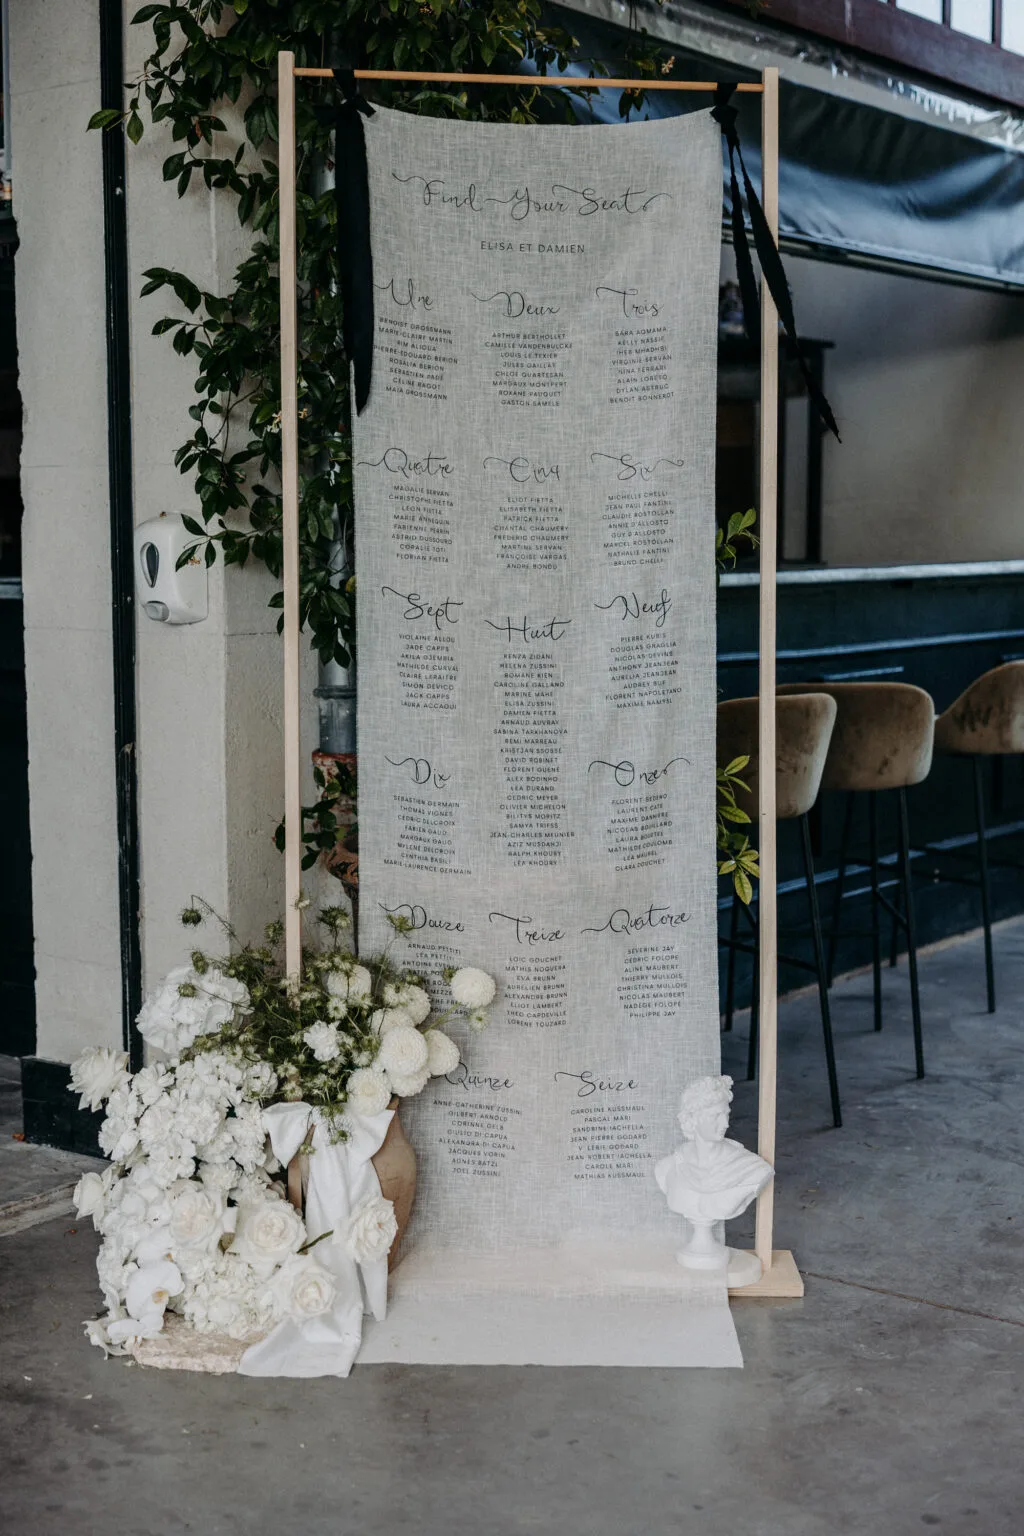 Find Your Seat
ELISA ET DAMIEN
Une
BENOIST GROSSMANN
MARIE-CLAIRE MARTIN
RIM ALIOUA
PIERRE-EDOUARD BERION
ROSALIA BERION
SEBASTIEN PADÉ
CÉLINE BAGOT
MAÏA GROSSMANN
Deux
ARTHUR BERTHOLLET
CAMILLE VANDENBULCKE
LOUIS LE TEXIER
JULES GAILLAT
CHLOÉ QUARTESAN
MARGAUX MONTPERT
ROXANE PAUQUET
GASTON SAMELE
Trois
SARA AQMAMA
KELLY NASSIF
IHEB MHADHBI
VIRGINIE SERVAN
NINA FERRARI
ALAIN LORETO
DYLAN ASTRUC
BENOIT BONNEROT
Quatre
MAGALIE SERVAN
CHRISTOPHE FIETTA
LEON FIETTA
MARIE ANNEQUIN
FABIENNE PERRIN
ASTRID DUSSOURD
CORALIE TOTI
FLORIAN FIETTA
Cinq
ELIOT FIETTA
ELISABETH FIETTA
PATRICK FIETTA
CHANTAL CHAUMERY
FREDERIC CHAUMERY
MARTINE SERVAN
FRANÇOISE VARGAS
ANDRE BONDU
Six
MICHELLE CHELLI
JEAN PAUL FANTINI
CLAUDIE ROSTOLLAN
ANNIE D'ALLOSTO
GUY D'ALLOSTO
MARCEL ROSTOLLAN
NATHALIE FANTINI
BRUNO CHELLI
Sept
VIOLAINE ALLOU
JADE CAPPS
AKILA DJEMBIA
MATHILDE CURVAL
CLAIRE LERAITRE
SIMON DEVICO
JACK CAPPS
LAURA ACCAOUI
Huit
KENZA ZIDANI
HELENA ZUSSINI
ROMANE KIEN
CAROLINE GALLAND
MARINE MAHE
ELISA ZUSSINI
DAMIEN FIETTA
ARNAUD AUVRAY
SABINA TARKHANOVA
REMI MARREAU
KRISTJAN SSOSSÉ
DAVID ROBINET
FLORENT GUENÉ
ALEX BODINHO
LEA DURAND
CEDRIC MEYER
OLIVIER MICHELON
BILITYS MORITZ
SAMYA TRIFSS
JEAN-CHARLES MEUNIER
AZIZ MUSDAHJI
RALPH KHOURY
LEA KHOURY
Neuf
PIERRE KUBIS
DOUGLAS GRAGLIA
NICOLAS DEVINE
ANTHONY JEANJEAN
AURELIA JEANJEAN
AUDREY BUE
FLORENT NAPOLETANO
MAXIME NAMYSL
Dix
SEBASTIEN GERMAIN
THOMAS VIGNES
CEDRIC DELCROIX
FABIEN GAUD
MARGAUX GAUD
MYLENE DELCROIX
CYNTHIA BASILI
MARIE-LAURENCE GERMAIN
Onze
FLORENT SEDENO
LAURENT CATE
MAXIME DANHIÈRE
NICOLAS BOUILLAND
LAURA BOUETEL
MATHILDE COULOMB
LEA MAUREL
CLARA DOUCHET
Douze
ARNAUD PETTITI
LEA PETTITI
ANTOINE
Treize
LOIC GOUCHET
MATHIS NOGUERA
EVA BRUNN
AURELIEN BRUNN
ALEXANDRE BRUNN
ELIOT LAMBERT
THEO CAPDEVILLE
LORENE TOUZARD
Quatorze
SEVERINE JAY
CEDRIC FOLOPE
ALINE MAUBERT
THIERRY MULLOIS
CHRISTINA MULLOIS
NICOLAS MAUBERT
NADEGE FOLOPE
PHILIPPE JAY
Quinze
ANNE-CATHERINE ZUSSINI
GILBERT ARNOLD
CORINNE GELB
GIULIO DI CAPUA
ALEXANDRA DI CAPUA
JACQUES VORIN
AGNES BATZI
JOEL ZUSSINI
Seize
CAROLINE KUSSMAUL
PASCAL MARI
SANDRINE IACHELLA
JEAN PIERRE GODARD
VALERIE GODARD
JEAN ROBERT IACHELLA
CAROLE MARI
MATHIAS KUSSMAUL